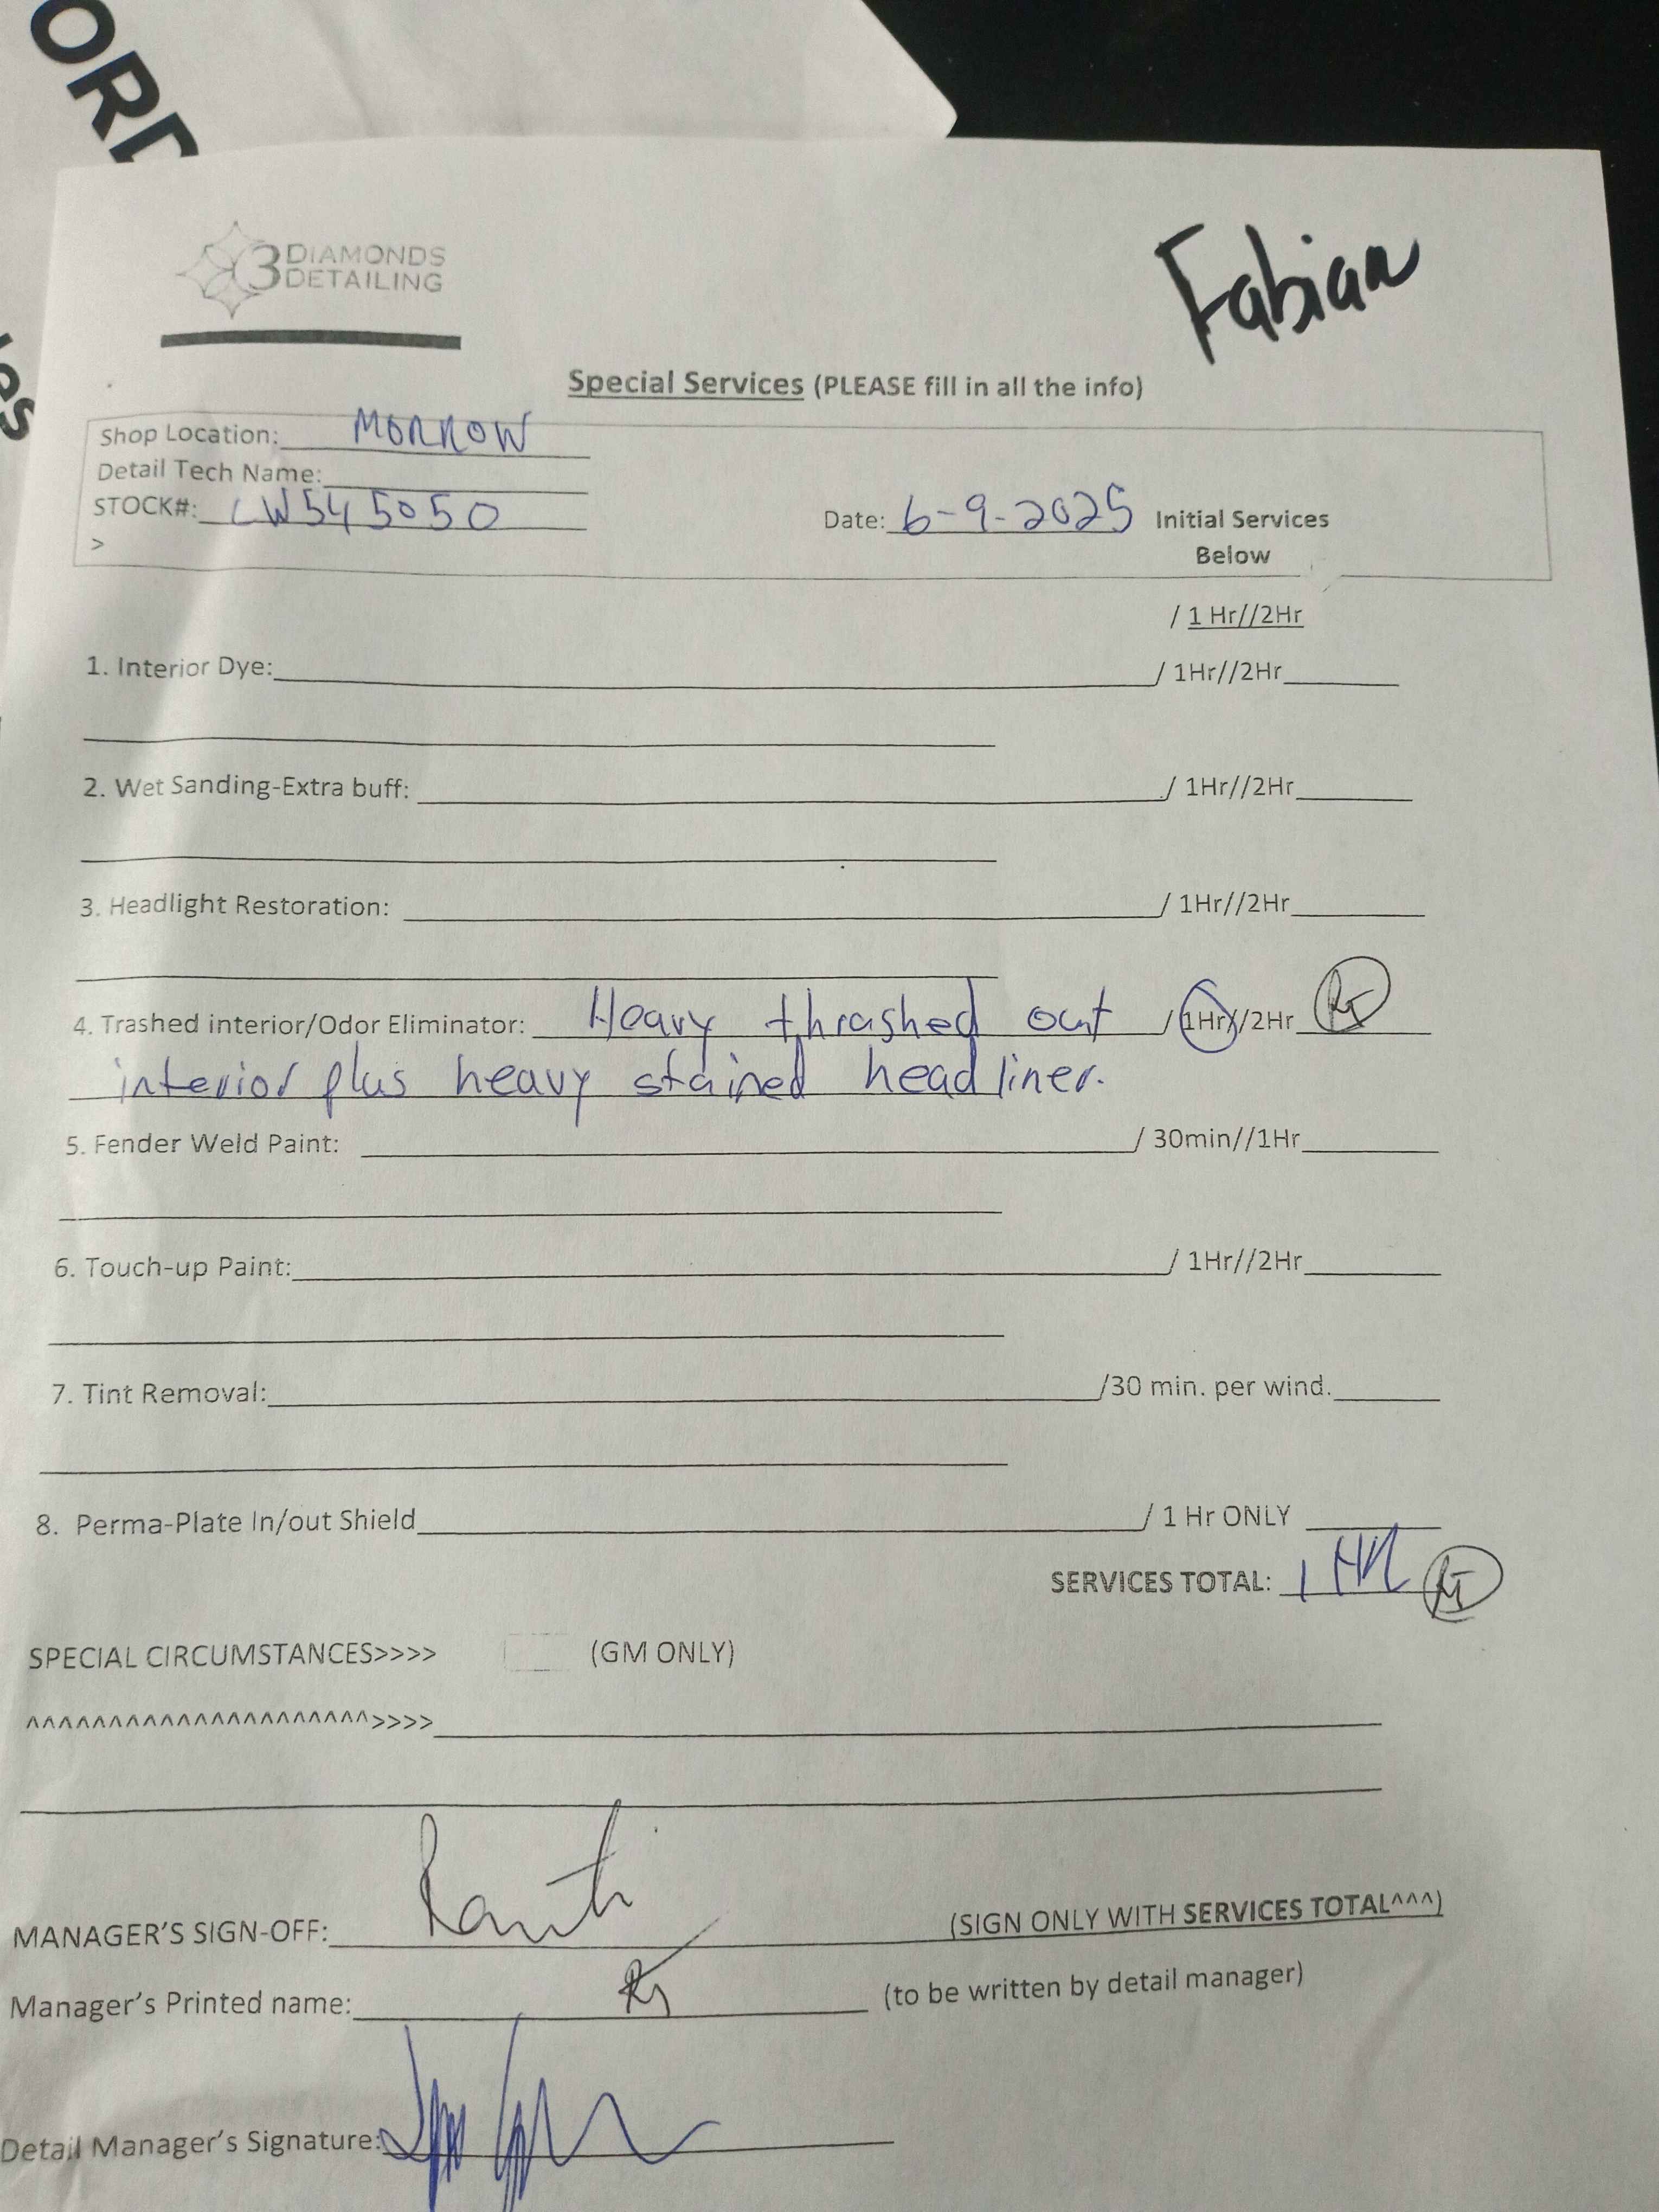 ORD
Fabian
3 DIAMONDS
DETAILING
Special Services (PLEASE fill in all the info)
Shop Location: MORROW
Detail Tech Name:
STOCK#: LW545050
Date: 6-9-2025 Initial Services
Below
>
/ 1 Hr//2Hr
1. Interior Dye: / 1Hr//2Hr
2. Wet Sanding-Extra buff: / 1Hr//2Hr
3. Headlight Restoration: / 1Hr//2Hr
4. Trashed interior/Odor Eliminator: Heavy thrashed out / 1Hr//2Hr RT
interior plus heavy stained head liner.
5. Fender Weld Paint: / 30min//1Hr
6. Touch-up Paint: / 1Hr//2Hr
7. Tint Removal: /30 min. per wind.
8. Perma-Plate In/out Shield / 1 Hr ONLY
SERVICES TOTAL: 1 HR RT
SPECIAL CIRCUMSTANCES>>>> (GM ONLY)
^^^^^^^^^^^^^^^^^^^^^>>>>
MANAGER'S SIGN-OFF: (SIGN ONLY WITH SERVICES TOTAL^^^)
Manager's Printed name: (to be written by detail manager)
Detail Manager's Signature: